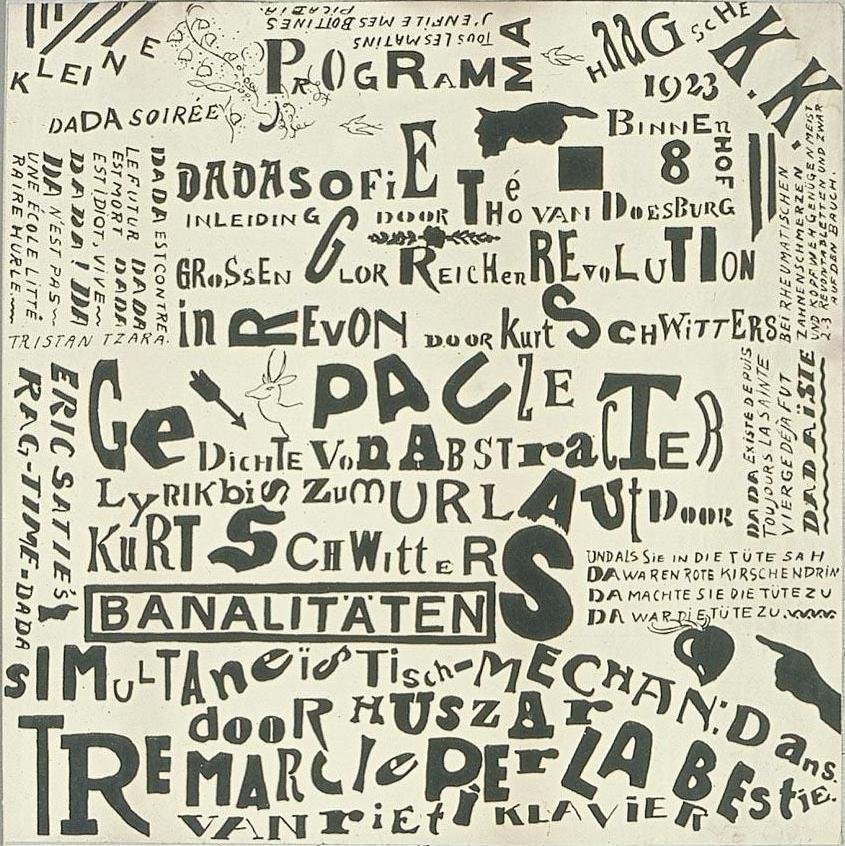 KLEINE
DADA SOIRÉE
TOUS LES MATINS
J'ENFILE MES BOTTINES
PICABIA.
PROGRAMMA
HAAGSCHE
K.K.
1923
BINNENHOF
8
DADASOFIE
INLEIDING DOOR Théo VAN DOESBURG
GROSSEN GLORREICHEN REVOLUTION
in REVON DOOR Kurt SCHWITTERS
DADA EST CONTRE
LE FUTUR DADA
EST MORT DADA
EST IDIOT, VIVE
DADA! DA
DA N'EST PAS
UNE ÉCOLE LITTÉ
RAIRE HURLE
TRISTAN TZARA.
BEI RHEUMATISCHEN
ZAHNENSCHMERZEN
UND KOPFWEH GENÜGEN MEIST
2-3 REVONTABLETTEN UND ZWAR
AUF DEN BAUCH.
PAUZE
Ge
DICHTE VON ABSTracTER
LYRIK biS ZUM URLAUt DOOR
KURT SCHWittERS
ERIC SATIE'S
RAG-TIME=DADA
DADA EXISTE DEPUIS
TOUJOURS LA SAINTE
VIERGE DÉJÀ FUT
DADAÏSTE
UND ALS SIE IN DIE TÜTE SAH
DA WAREN ROTE KIRSCHEN DRIN
DA MACHTE SIE DIE TÜTE ZU
DA WAR DIE TÜTE ZU.
BANALITÄTEN
SIMULTANeïSTisch-MECHAN: Dans.
door HUSZAr
TRE MARCIe PEr LA BEStie.
VAN rieti KLAVIER